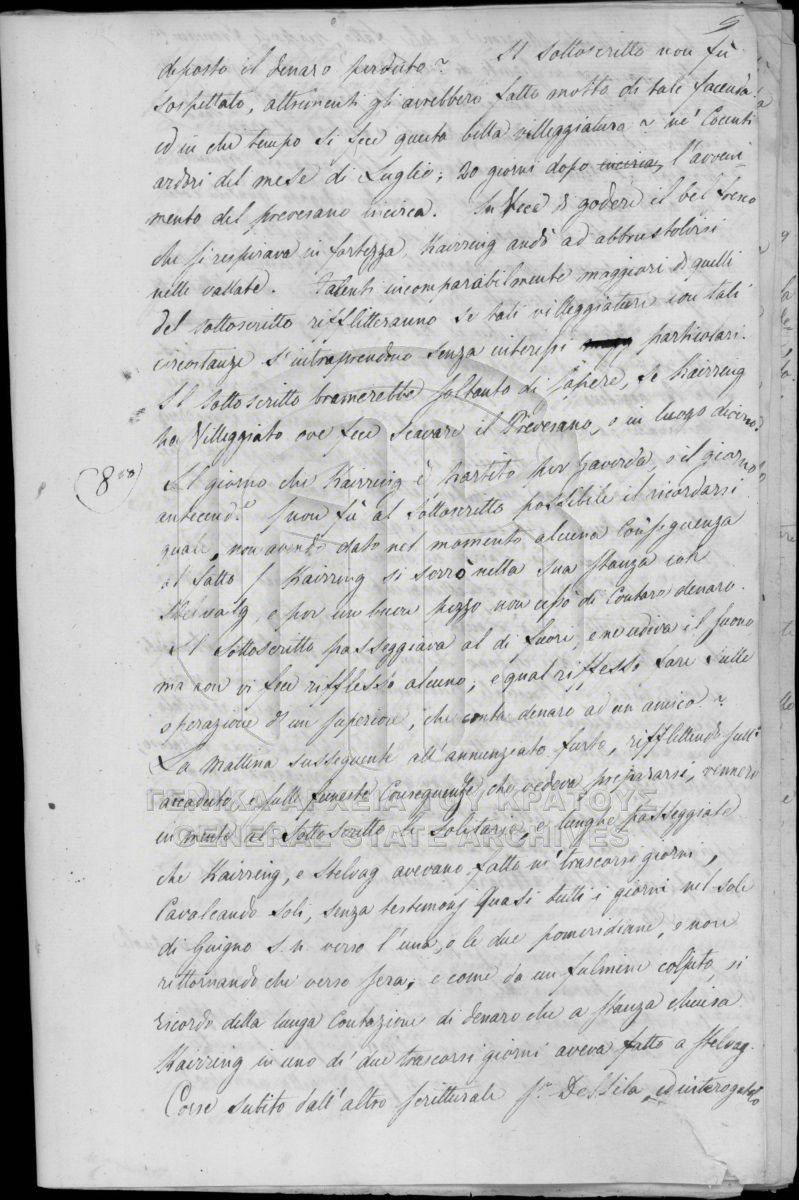 9
deposto il denaro perduto? Il sottoscritto non fù
sospettato, altrimenti gli avrebbero fatto motto di tale facenda
ed in che tempo si fece questa bella villeggiatura? ne' Cocenti
ardori del mese di Luglio; 20 giorni dopo incirca, l'avveni
mento del prevesano incirca. In Vece di godere il bel fresco
che si respirava in fortezza, Kairring andò ad abbrustolirsi
nelle vallate. Talenti incomparabilmente maggiori di quelli
del sottoscritto riffletteranno se tali villeggiature con tali
circostanze s'intraprendono senza interessi particolari.
Il sottoscritto bramerebbe soltanto di sapere, se Kairring
ha Villeggiato ove fece scavare il Prevesano, o in luogo vicino?
8vo) Il giorno che Kairring è partito per Zaverda, o il giorno
anteced.e (non fù al Sottoscritto possibile il ricordarsi
quale, non avendo dato nel momento alcuna Conseguenza
al fatto) Kairring si serrò nella sua stanza con
Stelvag, e per un buon pezzo non cessò di Contare denaro.
Il Sottoscritto passeggiava al di fuori, e ne udiva il suono
ma non vi fece rifflesso alcuno; e qual riflesso fare sulle
operazione d'un superiore, che conta denaro ad un amico?
La mattina susseguente all'annunziato furto, rifflettendo sull'
accaduto, e sulle funeste Conseguenze che vedeva prepararsi, vennero
in mente al Sottoscritto le solitarie, e lunghe passeggiate
che Kairring, e Stelvag avevano fatto ne' trascorsi giorni,
Cavalcando soli, senza testimonj quasi tutti i giorni nel sole
di Guigno s.n. verso l'una, o le due pomeridiane, e non
rittornando che verso sera; e come da un fulmine colpito, si
ricordo della lunga Contazione di denaro che a stanza chiusa
Kairring in uno de' due trascorsi giorni aveva fatto a Stelvag.
Corse subito dall'altro scritturale Sr. Dessila, ed interogatolo
ΓΕΝΙΚΑ ΑΡΧΕΙΑ ΤΟΥ ΚΡΑΤΟΥΣ
GENERAL STATE ARCHIVES